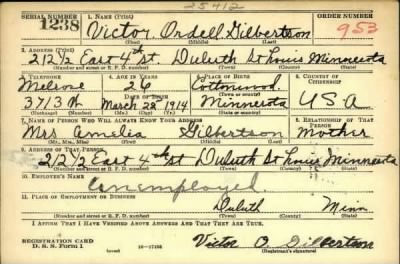 25412
SERIAL NUMBER 1. NAME (Print) ORDER NUMBER
1238 Victor Ordell Gilbertson 953
(First) (Middle) (Last)
2. ADDRESS (Print)
212½ East 4th St. Duluth St Louis Minnesota
(Number and street or R. F. D. number) (Town) (County) (State)
3. TELEPHONE 4. AGE IN YEARS 5. PLACE OF BIRTH 6. COUNTRY OF CITIZENSHIP
Melrose 26 Cottonwood
(Town or county)
3713 March 28, 1914 Minnesota U S A
(Exchange) (Number) (Mo.) (Day) (Yr.) (State or country)
7. NAME OF PERSON WHO WILL ALWAYS KNOW YOUR ADDRESS 8. RELATIONSHIP OF THAT PERSON
Mrs Amelia Gilbertson Mother
(Mr., Mrs., Miss) (First) (Middle) (Last)
9. ADDRESS OF THAT PERSON
212½ East 4th St Duluth St Louis Minnesota
(Number and street or R. F. D. number) (Town) (County) (State)
10. EMPLOYER'S NAME
Unemployed
11. PLACE OF EMPLOYMENT OR BUSINESS
Duluth Minn
(Number and street or R. F. D. number) (Town) (County) (State)
I AFFIRM THAT I HAVE VERIFIED ABOVE ANSWERS AND THAT THEY ARE TRUE.
REGISTRATION CARD
D. S. S. Form 1 16—17105 Victor O. Gilbertson
(Registrant's signature)